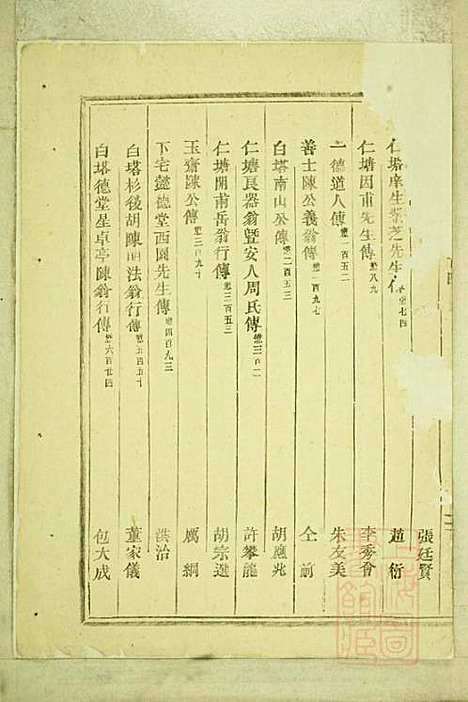 張廷賢
仁塘庠生紫芝先生傳 趙衍
仁塘因甫先生傳 總八九 李秀會
一德道人傳 總一百五二 朱友美
善士陳公義翁傳 總一百九七 仝前
白塔南山公傳 總二百五三 胡應兆
仁塘良器翁暨安人周氏傳 總三百二 許攀龍
仁塘開甫岳翁行傳 總三百五三 胡宗選
玉齋陳公傳 總三百九十 厲綱
下宅懿德堂西園先生傳 總四百九三 洪治
白塔杉後胡陳明法翁行傳 總五百四五十 董家儀
白塔德堂星卓亭陳翁行傳 總六百廿四 包大成